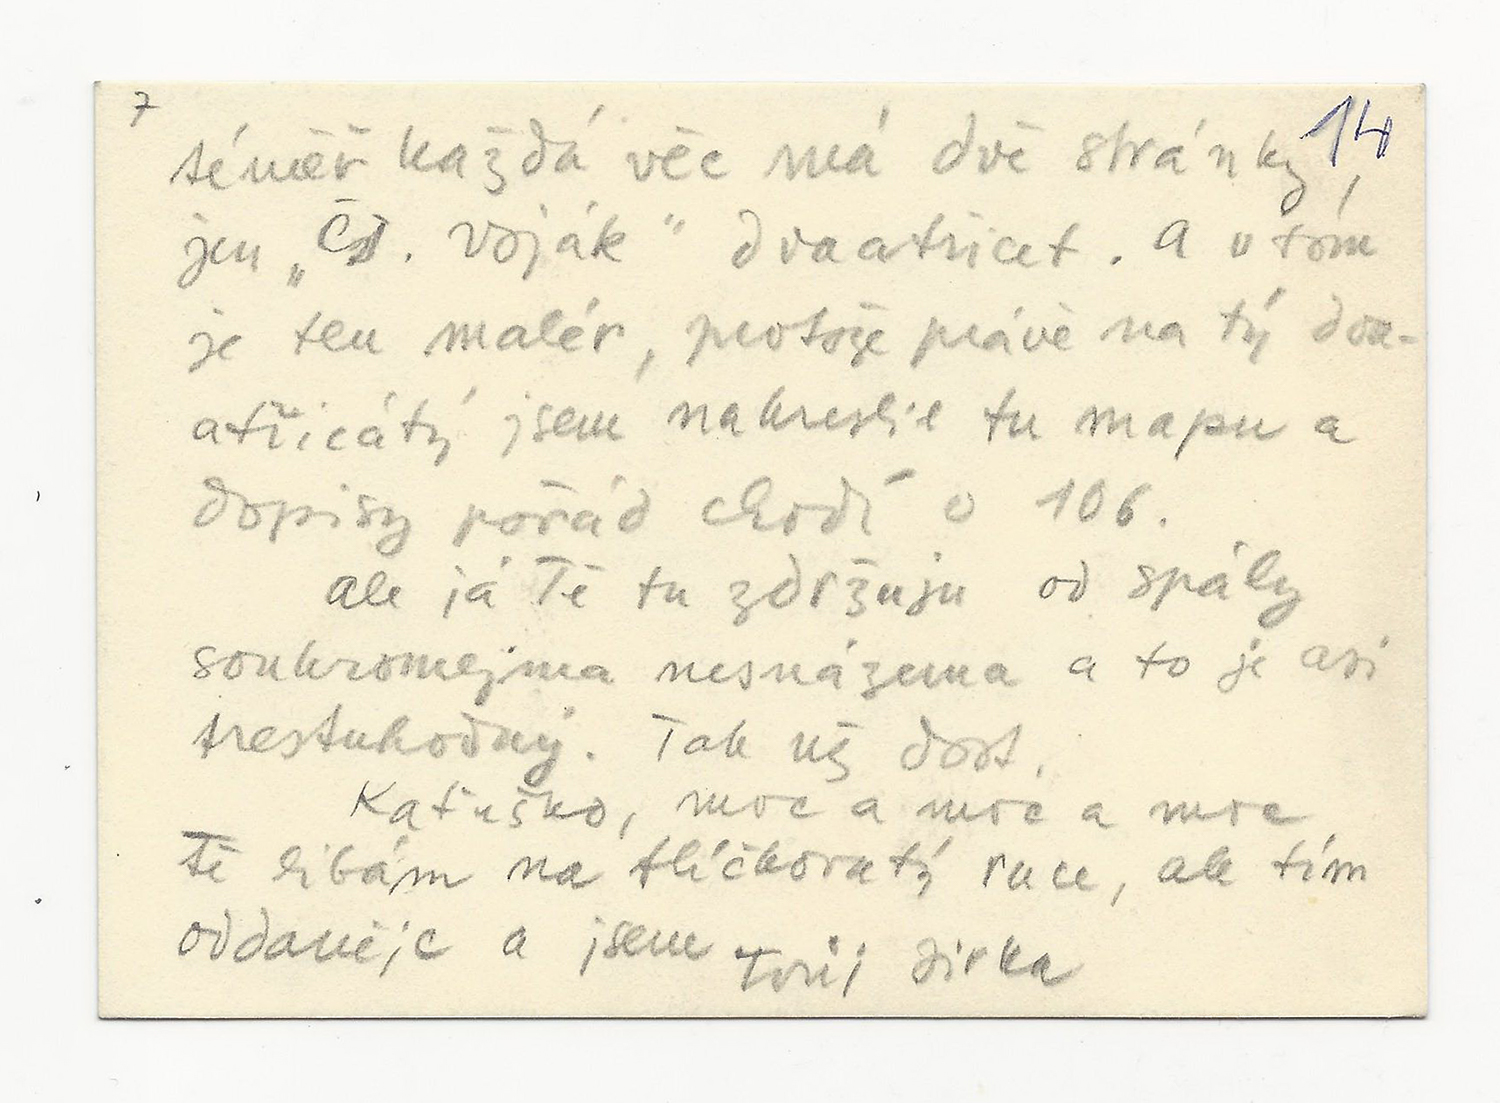 7
14
téměř každá věc má dvě stránky,
jen „Čs. voják" dvaatřicet. A v tom
je ten malér, protože právě na tý dva-
atřicátý jsem nakreslil tu mapu a
dopisy pořád chodí v 106.
Ale já Tě tu zdržuju od spály
soukromejma nesnázema a to je asi
trestuhodný. Tak už dost.
Katuško, moc a moc a moc
Tě líbám na flíčkovatý ruce, ale tím
oddanějc a jsem Tvůj Jirka